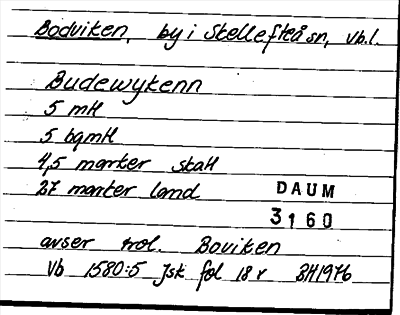 Bodviken, by i Skellefteå sn, Vb.l.
Budewykenn
5 mtl
5 bgmtl
4,5 marker skatt
27 marker land
DAUM
3160
avser trol. Boviken
Vb 1580:5 Jsk fol 18 v BH1976